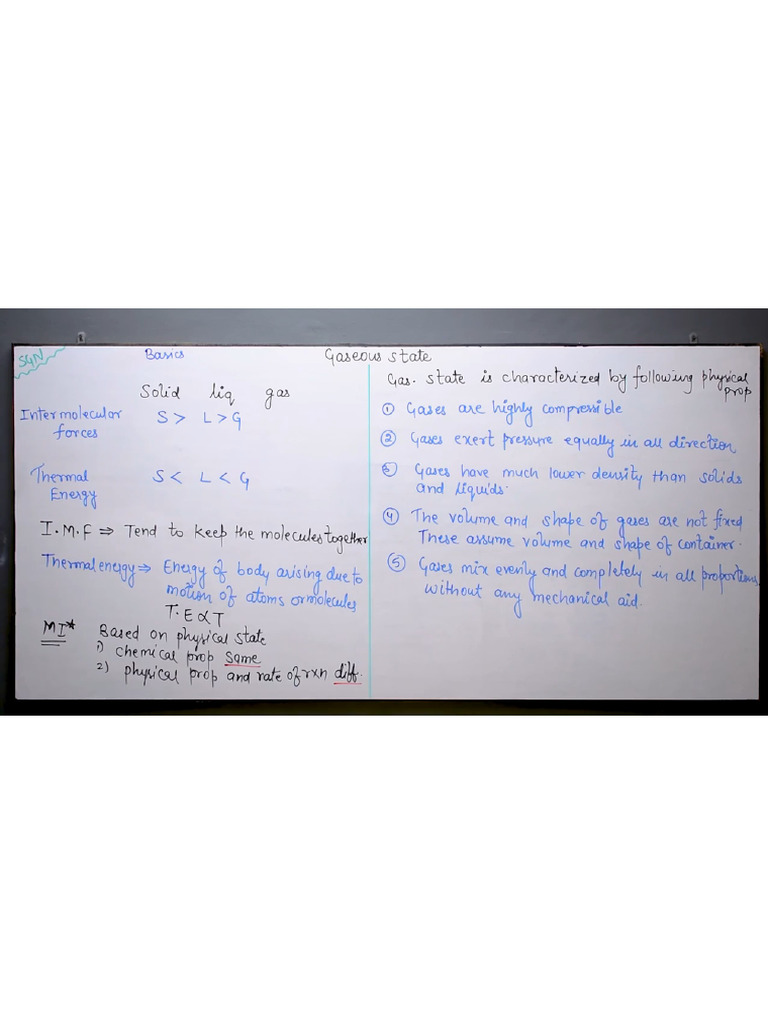 SGN
Basics
Gaseous state
Solid liq gas
Intermolecular
forces
S > L > G
Thermal
Energy
S < L < G
I.M.F ⇒ Tend to keep the molecules together
Thermal energy ⇒ Energy of body arising due to
motion of atoms or molecules
T.E ∝ T
MI* Based on physical state
1) chemical prop same
2) physical prop and rate of rxn diff.
Gas. state is characterized by following physical
prop
① Gases are highly compressible
② Gases exert pressure equally in all direction
③ Gases have much lower density than solids
and liquids.
④ The volume and shape of gases are not fixed
These assume volume and shape of container.
⑤ Gases mix evenly and completely in all proportions
without any mechanical aid.